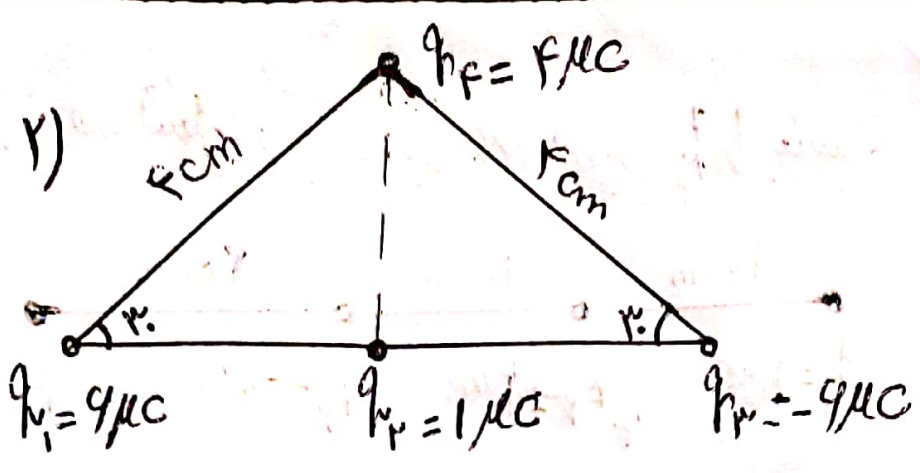 ۲)
q۴ = ۴ μC
۴cm
۴cm
۳۰
۳۰
q۱ = ۹ μC
q۲ = ۱ μC
q۳ = -۹ μC